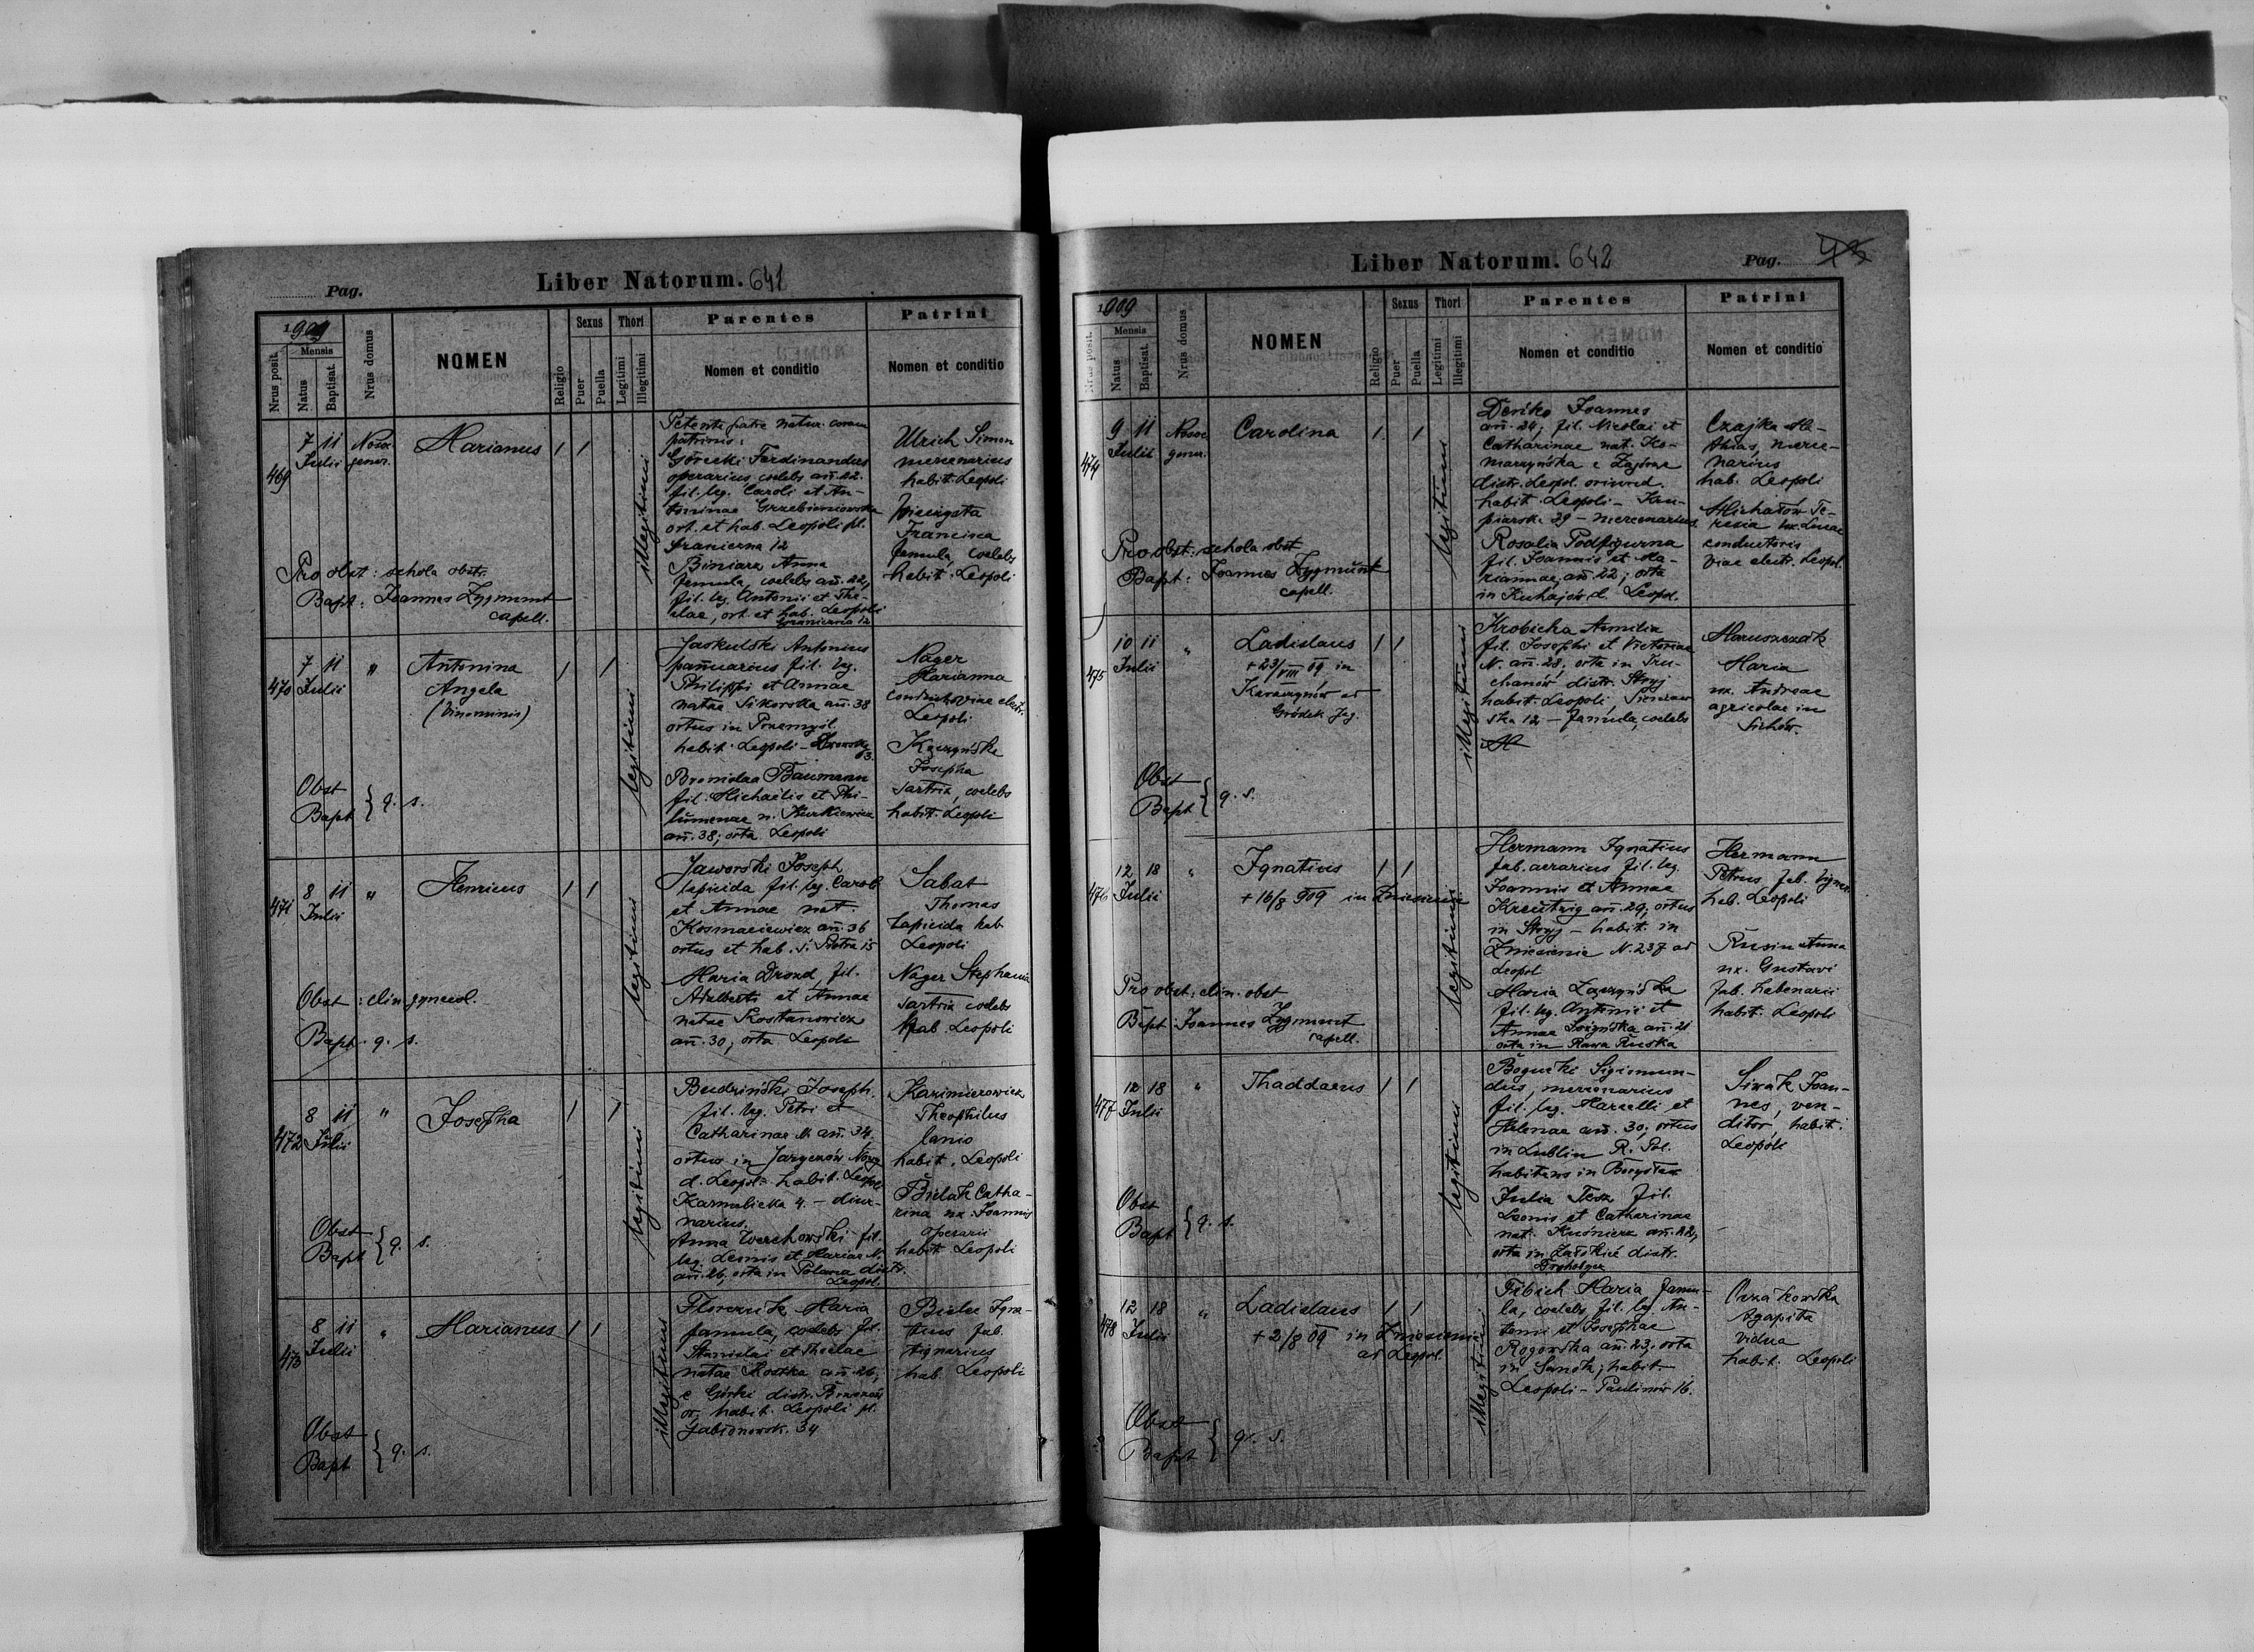 Pag.
Liber Natorum. 641
1909
Nrus posit.
Mensis
Natus
Baptisat.
Nrus domus
NOMEN
Religio
Sexus
Puer
Puella
Thori
Legitimi
Illegitimi
Parentes
Nomen et conditio
Patrini
Nomen et conditio
469
7 11
Julii
Nosoc.
gener.
Marianus
1 1
illegitimi
Petente patre natur. coram
patrinis:
Górecki Ferdinandus
operarius, coelebs añ. 22.
fil. leg. Caroli et An-
toninae
ort. et hab. Leopoli pl.
Franiczna 12
Biniarz Anna
famula, coelebs añ. 22,
fil. leg. Antonii et The-
clae, ort. et hab. Leopoli
12
Ulrich Simon
mercenarius
habit. Leopoli
Francisca
famula, coelebs
habit. Leopoli
Pro obst: schola obstr.
Bapt: Joannes Zygmunt
capell.
470
7 11
Julii
"
Antonina
Angela
(binominis)
1 1
legitimi
Jaskulski Antonius
pannarius fil. leg.
Philippi et Annae
natae Sikorska añ. 38
ortus in Przemyśl.
habit. Leopoli -
Bronislaa Baumann
fil. Michaëlis et Phi-
lumenae n.
añ. 38; orta Leopoli
Nager
Marianna
viae electr.
Leopoli
Kaczyńska
Josepha
sartrix, coelebs
habit. Leopoli
Obst
Bapt } q. s.
471
8 11
Julii
"
Henricus
1 1
legitimi
Jaworski Joseph
lapicida fil. leg. Caroli
et Annae nat.
Kosmaciewicz añ. 36
ortus et hab. S. Piotra 15
Maria Drozd, fil.
Adalberti et Annae
natae Kostanowicz
añ. 30; orta Leopoli
Sabat
Thomas
lapicida hab.
Leopoli
Nager Stephania
sartrix coelebs
hab. Leopoli
Obst: clin. gynecol.
Bapt. q. s.
472
8 11
Julii
"
Josepha
1 1
legitimi
Budziński Joseph.
fil. leg. Petri et
Catharinae N. añ. 34,
ortus in Jaryczów Nowy
d. Leopol. habit. Leopol
Karmelicka 4. - diur-
narius.
Anna Werchowski fil.
leg. Leonis et Mariae N.
añ. 26, orta in Polana distr.
Leopol.
Kazimierowicz
Theophilus
lanio
habit. Leopoli
Bielak Catha-
rina ux. Joannis
operarii
habit Leopoli
Obst
Bapt } q. s.
473
8 11
Julii
"
Marianus
1 1
illegitimus
Maria
famula, coelebs fil.
Stanislai et Theclae
natae Kostka añ. 26,
e Górki distr. Brzozów
or; habit. Leopoli pl.
Jabłonowsk. 34
Igna-
tius fab.
tignarius
hab. Leopoli
Obst
Bapt } q. s.
Liber Natorum. 642
Pag.
1909
Nrus posit.
Mensis
Natus
Baptisat.
Nrus domus
NOMEN
Religio
Sexus
Puer
Puella
Thori
Legitimi
Illegitimi
Parentes
Nomen et conditio
Patrini
Nomen et conditio
474
9 11
Julii
Nosoc
gener.
Carolina
1 1
legitimi
Joannes
añ. 24, fil. Nicolai et
Catharinae nat. Ko-
marzyńska e Zagórze
distr. Leopol. oriund.
habit. Leopoli - Kau-
piarska 29 - mercenarius.
Rosalia Podfigurna
fil. Joannis et Ma-
riannae, añ. 22, orta
in Kuhajów d. Leopol.
Czajka Ma-
thias, merce-
narius
hab. Leopoli
Michałów Te-
resia ux. Lucae
conductoris
viae electr. Leopol.
Pro obst: schola obst
Bapt: Joannes Zygmunt
capell.
475
10 11
Julii
"
Ladislaus
+ 23/VIII 09 in
Karaczynów ad
Gródek Jag.
1 1
illegitimi
Krobicka Aemilia
fil. Josephi et Victoriae
N. añ. 28, orta in Tru-
chanów distr. Stryj
habit. Leopoli, Sieniaw
ska 12 - famula, coelebs
Maruszczak
Maria
ux. Andreae
agricolae in
Sichów.
Obst
Bapt } q. s.
476
12 18
Julii
"
Ignatius
+ 16/8 909 in Zniesienie
1 1
legitimi
Hermann Ignatius
fab. aerarius fil. leg.
Joannis et Annae
Kreutzig añ. 29, ortus
in Stryj - habit. in
Zniesienie N. 237 ad
Leopol
Maria
fil. leg. Antonii et
Annae añ. 21
orta in Rawa Ruska
Hermann
Petrus fab. lignar.
hab. Leopoli
Rusin Anna
ux. Gustavi
fab. habenarii
habit. Leopoli
Pro obst: clin. obst
Bapt: Joannes Zygmunt
capell.
477
12 18
Julii
"
Thaddaeus
1 1
legitimi
Bogucki Sigismun-
dus, mercenarius
fil. leg. Marcelli et
Helenae añ. 30; ortus
in Lublin R. Pol.
habitans in Borysław
Julia Tesz fil.
Leonis et Catharinae
nat. Kuśnierz añ. 22,
orta in distr.
Drohobycz
Siwak Joan-
nes, ven-
ditor, habit.
Leopoli
Obst
Bapt } q. s.
478
12 18
Julii
"
Ladislaus
+ 2/8 09 in Zniesienie
ad Leopol.
1 1
illegitimi
Fibich Maria famu-
la, coelebs, fil. leg. An-
tonii et Josephae
Rogowska añ. 23, orta
in Sanok; habit.
Leopoli - Paulinów 16.
Agapita
vidua
habit. Leopoli
Obst
Bapt } q. s.